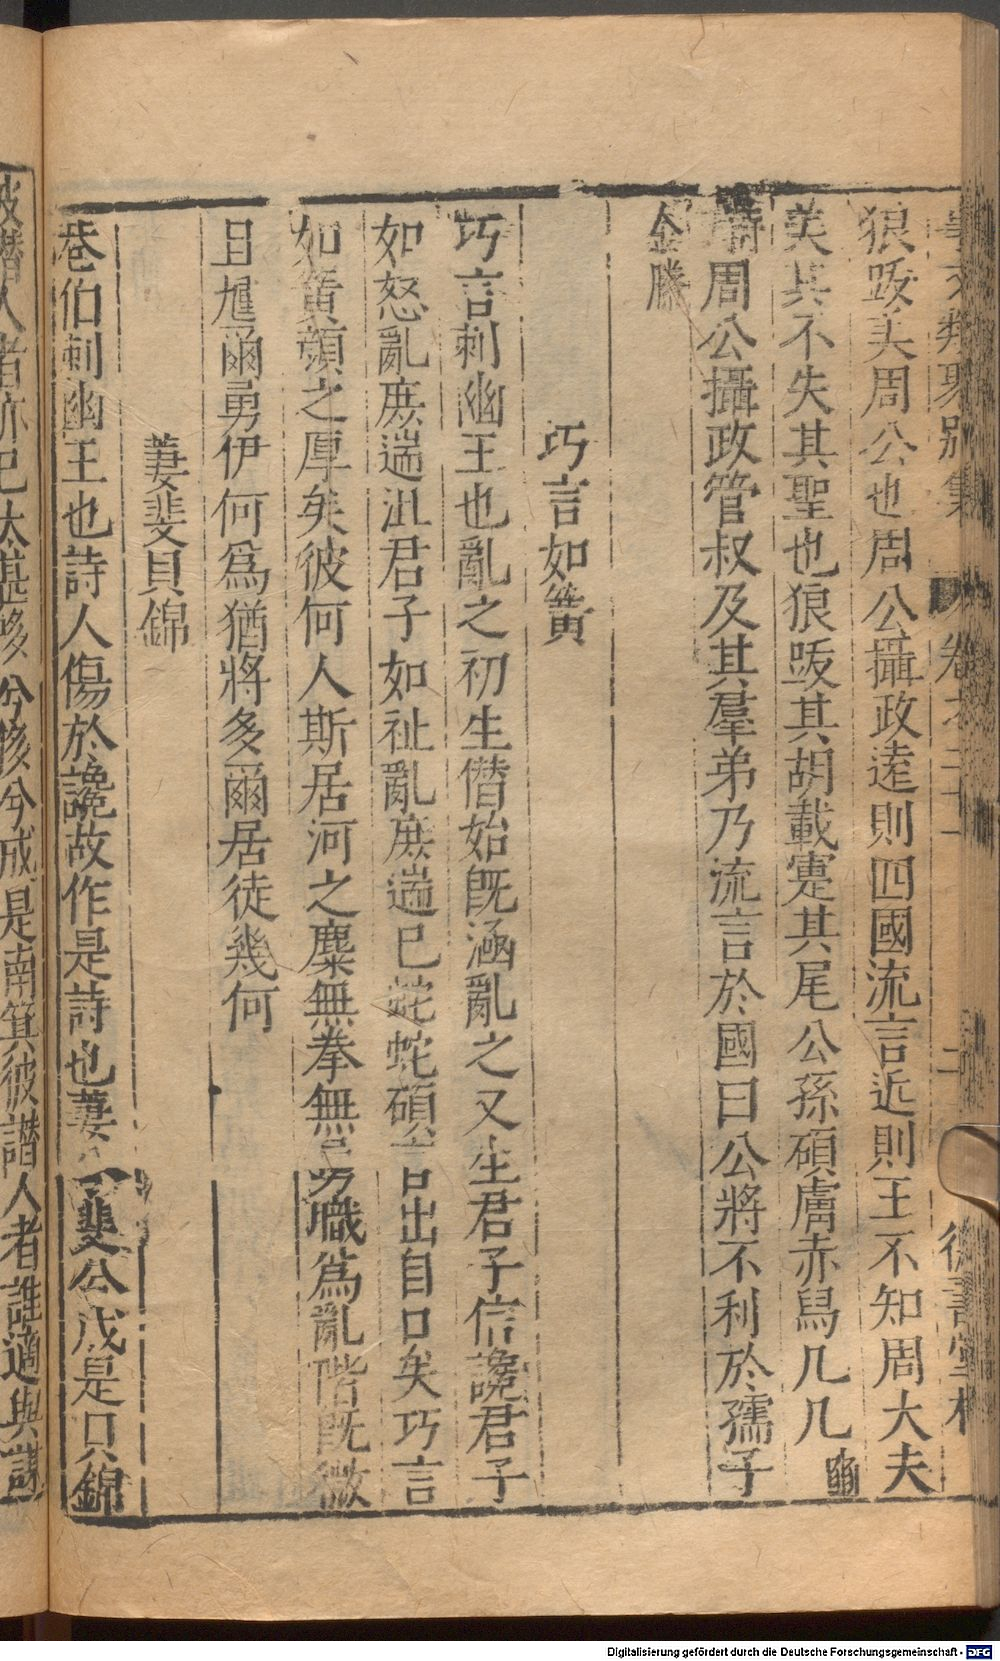 事文類聚別集 卷之二十 二
狼跋美周公也周公攝政逺則四國流言近則王不知周大夫
美其不失其聖也狼跋其胡載疐其尾公孫碩膚赤舄几几 豳
詩周公攝政管叔及其羣弟乃流言於國曰公將不利於孺子
金縢
巧言如簧
巧言刺幽王也亂之初生僭始旣涵亂之又生君子信讒君子
如怒亂庶遄沮君子如祉亂庶遄已蛇蛇碩言出自口矣巧言
如簧顔之厚矣彼何人斯居河之麋無拳無勇職爲亂階旣微
且尰爾勇伊何爲猶將多爾居徒幾何
萋斐貝錦
巷伯刺幽王也詩人傷於讒故作是詩也萋兮斐兮成是貝錦
彼譖人者亦已太甚哆兮侈兮成是南箕彼譖人者誰適與謀
Digitalisierung gefördert durch die Deutsche Forschungsgemeinschaft - DFG